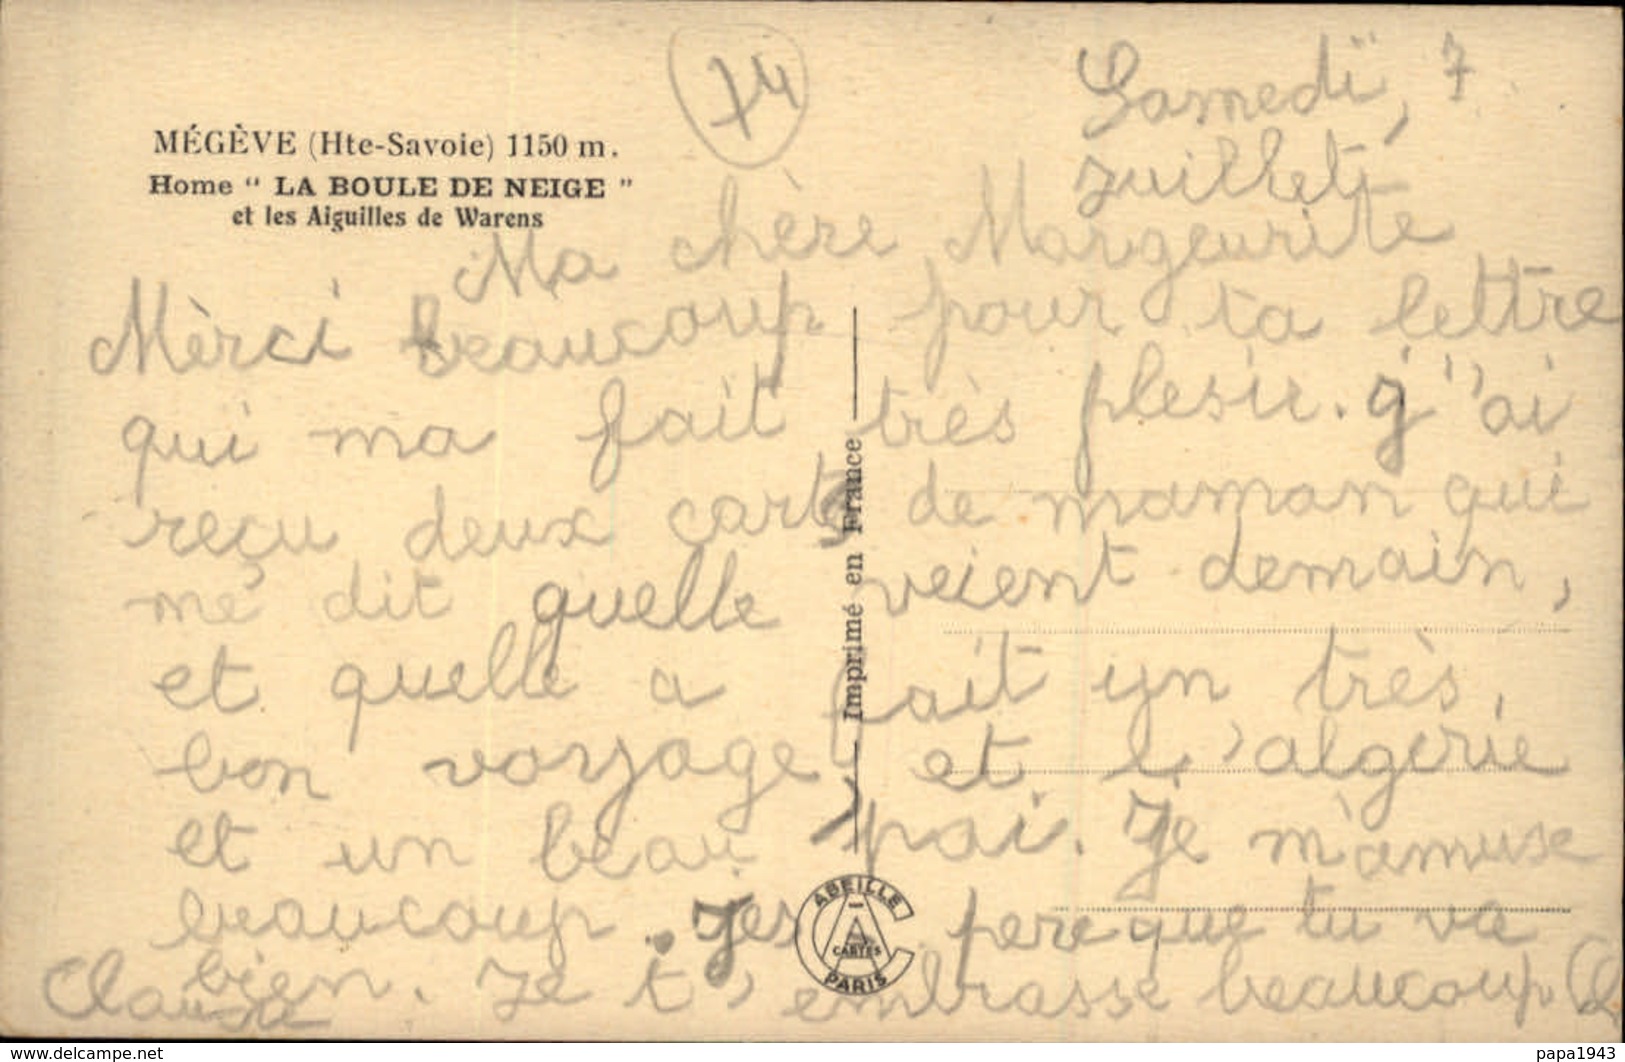 74
Samedi, 7
juillet
MÉGÈVE (Hte-Savoie) 1150 m.
Home " LA BOULE DE NEIGE "
et les Aiguilles de Warens
Ma chère Margeurite
Mèrci beaucoup pour ta lettre
qui ma fait très plesir. j'ai
reçu deux carts de maman qui
me dit quelle veient demain,
et quelle a fait yn très
bon voyage, et l'algerie
et un beau pai. Je m'amuse
beaucoup. Jes pere que tu va
bien. Je t'embrasse beaucoup
Clause
Imprimé en France
ABEILLE
CARTES
PARIS
delcampe.net
papa1943